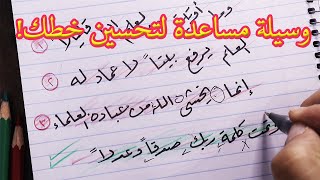 وسيلة مساعدة لتحسين خطك!
العلم يرفع بيتاً لا عماد له
٢
إنما يخشى الله من عباده العلماء
٣
وتمت كلمة ربك صدقاً وعدلاً